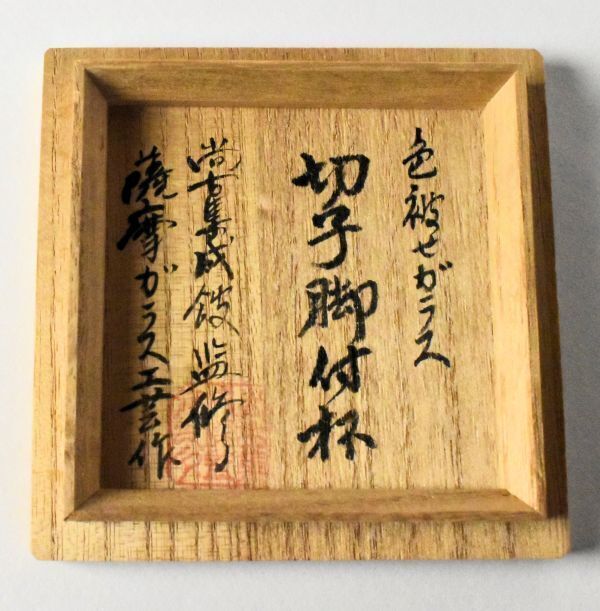 色被せガラス
切子脚付杯
尚古集成館監修
薩摩ガラス工芸作